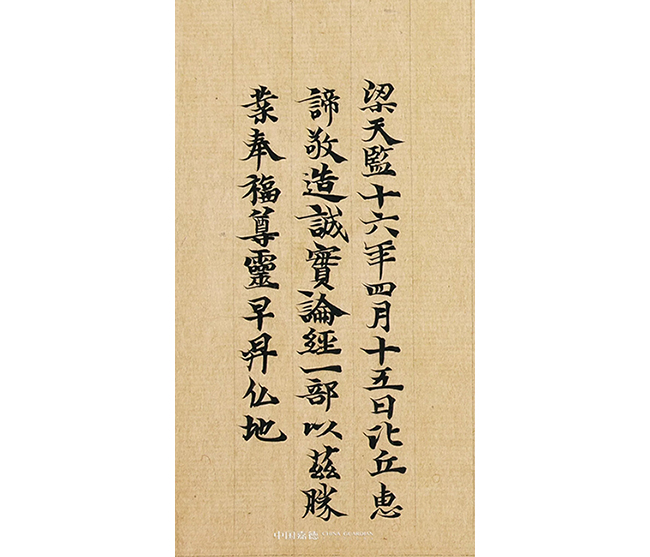 梁天監十六年四月十五日比丘恵
諦敬造誠實論經一部以茲勝
業奉福尊靈早昇仏地
中国嘉德 CHINA GUARDIAN